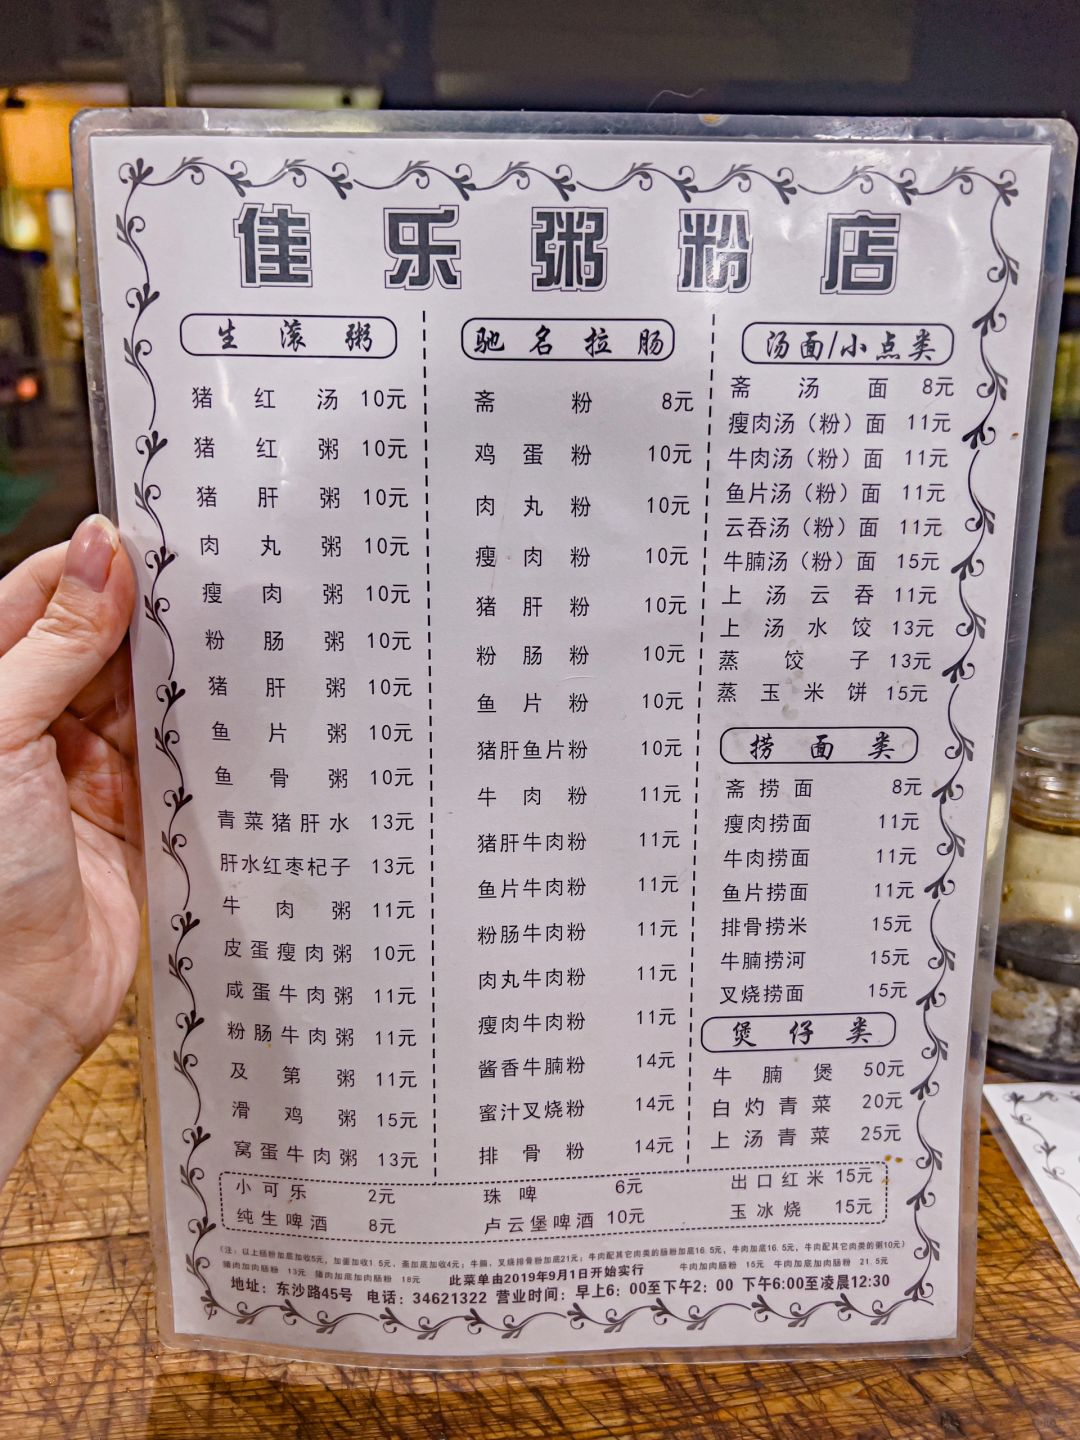 佳乐粥粉店
生滚粥
猪红汤 10元
猪红粥 10元
猪肝粥 10元
肉丸粥 10元
瘦肉粥 10元
粉肠粥 10元
猪肝粥 10元
鱼片粥 10元
鱼骨粥 10元
青菜猪肝水 13元
肝水红枣杞子 13元
牛肉粥 11元
皮蛋瘦肉粥 10元
咸蛋牛肉粥 11元
粉肠牛肉粥 11元
及第粥 11元
滑鸡粥 15元
窝蛋牛肉粥 13元
驰名拉肠
斋粉 8元
鸡蛋粉 10元
肉丸粉 10元
瘦肉粉 10元
猪肝粉 10元
粉肠粉 10元
鱼片粉 10元
猪肝鱼片粉 10元
牛肉粉 11元
猪肝牛肉粉 11元
鱼片牛肉粉 11元
粉肠牛肉粉 11元
肉丸牛肉粉 11元
瘦肉牛肉粉 11元
酱香牛腩粉 14元
蜜汁叉烧粉 14元
排骨粉 14元
汤面/小点类
斋汤面 8元
瘦肉汤（粉）面 11元
牛肉汤（粉）面 11元
鱼片汤（粉）面 11元
云吞汤（粉）面 11元
牛腩汤（粉）面 15元
上汤云吞 11元
上汤水饺 13元
蒸饺子 13元
蒸玉米饼 15元
捞面类
斋捞面 8元
瘦肉捞面 11元
牛肉捞面 11元
鱼片捞面 11元
排骨捞米 15元
牛腩捞河 15元
叉烧捞面 15元
煲仔类
牛腩煲 50元
白灼青菜 20元
上汤青菜 25元
小可乐 2元 珠啤 6元 出口红米 15元
纯生啤酒 8元 卢云堡啤酒 10元 玉冰烧 15元
（注：以上肠粉加底加收5元，加蛋加收1.5元、斋加底加收4元；牛腩、叉烧排骨粉加底21元；牛肉配其它肉类的肠粉加底16.5元，牛肉加底16.5元，牛肉配其它肉类的粥10元）
猪肉加肉肠粉 13元 猪肉加底加肉肠粉 18元 此菜单由2019年9月1日开始实行 牛肉加肉肠粉 15元 牛肉加底加肉肠粉 21.5元
地址：东沙路45号 电话：34621322 营业时间：早上6：00至下午2：00 下午6:00至凌晨12:30